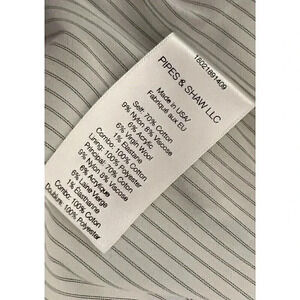 18021891409
PIPES & SHAW LLC
Made in USA/
Fabrique aux EU
Self: 70% Cotton
9% Nylon 8% Viscose
6% Acrylic
6% Virgin Wool
1% Elastane
Combo: 100% Cotton
Lining: 100% Polyester
Principal: 70% Coton
9% Nylon 8% Viscose
6% Acrylique
6% Laine Vierge
1% Élasthanne
Combo: 100% Coton
Doublure: 100% Polyester